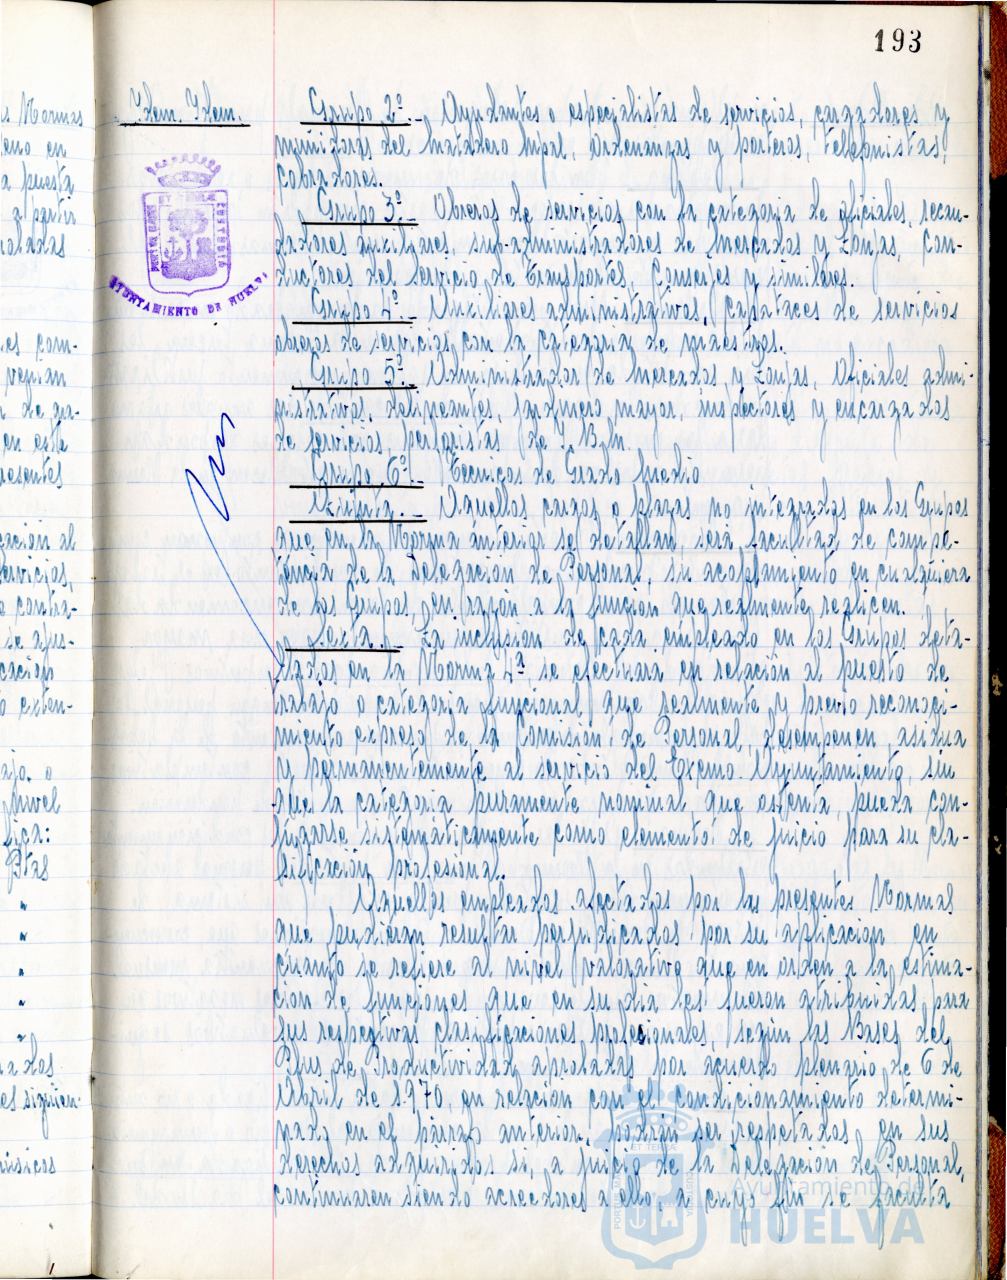 193
Idem. Idem.
Grupo 2º.- Ayudantes o especialistas de servicios, cargadores y
munidoras del matadero mpal, ordenanzas y porteros, telefonistas,
Cobradores.
Grupo 3º.- Obreros de servicios con la categoria de oficiales, recau-
dadores auxiliares, sub-administradores de mercados y Lonjas, Con-
ductores del Servicio de Transportes, Conserjes y similares.
Grupo 4º. Auxiliares administrativos, Capataces de servicios
obreros de servicios con la categoria de maestros.
Grupo 5º.- Administrador de mercados y Lonjas, Oficiales admi-
nistrativos, delineantes, Jardinero mayor, inspectores y encargados
de servicios,
Grupo 6º.- Tecnicos de Grado medio
Quinta.- Aquellos casos o plazas no integrados en los Grupos
que en la Norma anterior se detallan, será facultad de compe-
tencia de la Delegacion de Personal, su acoplamiento en cualquiera
de los Grupos, en razon a la funcion que realmente realicen.
Sexta.- La inclusion de cada empleado en los Grupos deta-
llados en la Norma 4ª se efectuará en relación al puesto de
trabajo o categoria funcional que realmente y previo reconoci-
miento expreso de la Comision de Personal, desempeñen, asidua
y permanentemente al servicio del Excmo. Ayuntamiento, sin
que la categoria puramente nominal que ostenta, pueda con-
jugarse sistematicamente como elemento de juicio para su cla-
sificacion profesional.
Aquellos empleados afectados por las presentes Normas
que pudieran resultar perjudicados por su aplicacion en
cuanto se refiere al nivel valorativo que en orden a la estima-
cion de funciones que en su dia les fueron atribuidas para
sus respectivas clasificaciones profesionales, según las Bases del
Plus de Productividad aprobadas por acuerdo plenario de 6 de
Abril de 1.970, en relacion con el condicionamiento determi-
nado en el parrafo anterior, podrán ser respetados en sus
derechos adquiridos si, a juicio de la Delegación de Personal,
continuaren siendo acreedores a ello, a cuyo fin se faculta
AYUNTAMIENTO DE HUELVA
Ayuntamiento de
HUELVA